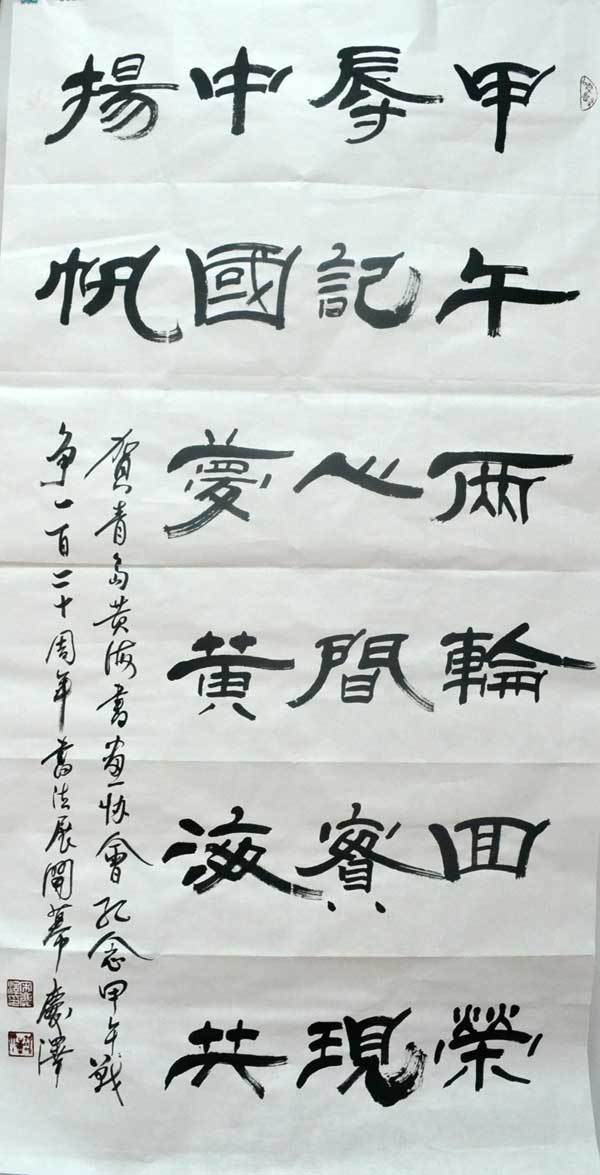 甲午兩輪回榮
辱記心間實現
中國夢黄海共
揚帆
賀青島黄海書畫協會紀念甲午戰
争一百二十周年書法展開幕 慶澤